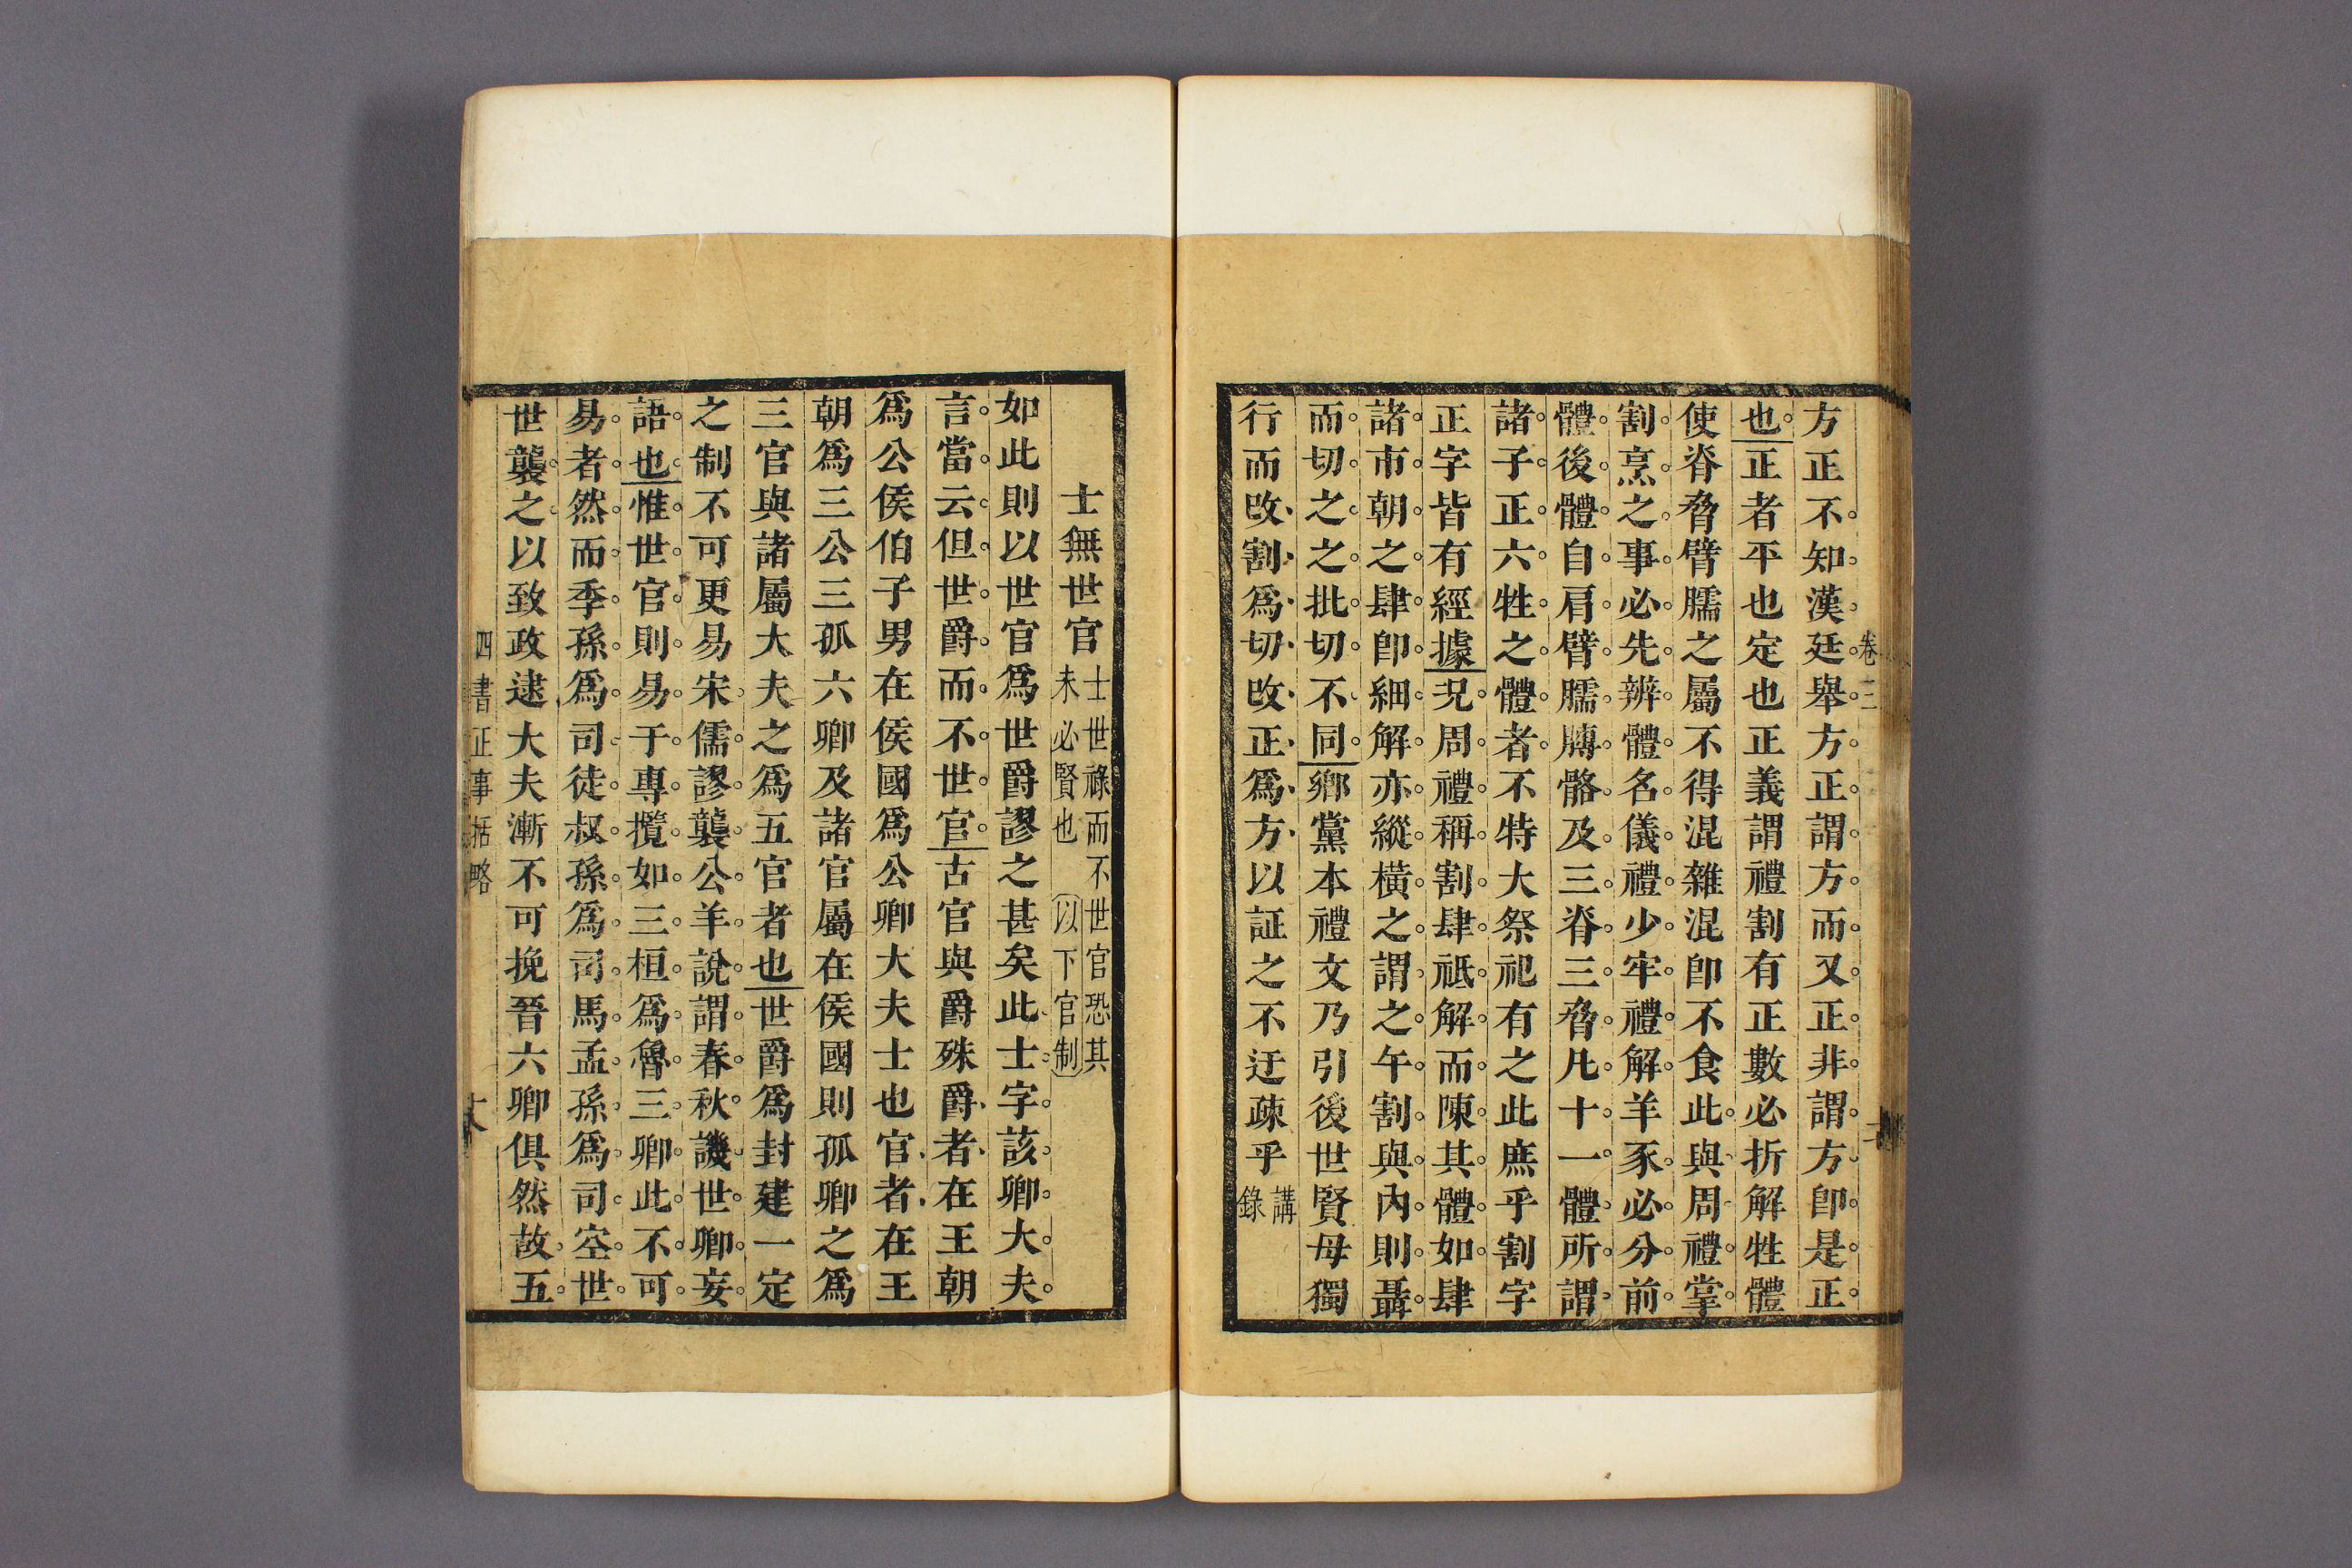 卷三
方正不知漢廷舉方正謂方而又正非謂方卽是正
也正者平也定也正義謂禮割有正數必折解牲體
使脊脅臂臑之屬不得混雜混卽不食此與周禮掌
割烹之事必先辨體名儀禮少牢禮解羊豕必分前
體後體自肩臂臑膊骼及三脊三脅凡十一體所謂
諸子正六牲之體者不特大祭祀有之此庶乎割字
正字皆有經據況周禮稱割肆祗解而陳其體如肆
諸市朝之肆卽細解亦縱橫之謂之午割與內則聶
而切之之批切不同鄉黨本禮文乃引後世賢母獨
行而改割爲切改正爲方以証之不迂疎乎 講錄
士無世官 士世祿而不世官恐其未必賢也 以下官制
如此則以世官爲世爵謬之甚矣此士字該卿大夫
言當云但世爵而不世官古官與爵殊爵者在王朝
爲公侯伯子男在侯國爲公卿大夫士也官者在王
朝爲三公三孤六卿及諸官屬在侯國則孤卿之爲
三官與諸屬大夫之爲五官者也世爵爲封建一定
之制不可更易宋儒謬襲公羊說謂春秋譏世卿妄
語也惟世官則易于專攬如三桓爲魯三卿此不可
易者然而季孫爲司徒叔孫爲司馬孟孫爲司空世
世襲之以致政逮大夫漸不可挽晉六卿俱然故五
四書正事括略